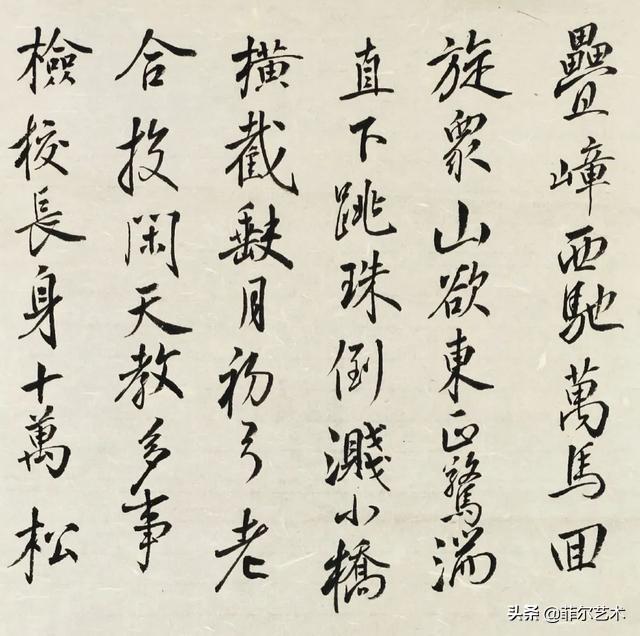 疊嶂西馳萬馬回
旋衆山欲東正驚湍
直下跳珠倒濺小橋
橫截缺月初弓老
合投閑天教多事
檢校長身十萬松
头条 @菲尔艺术